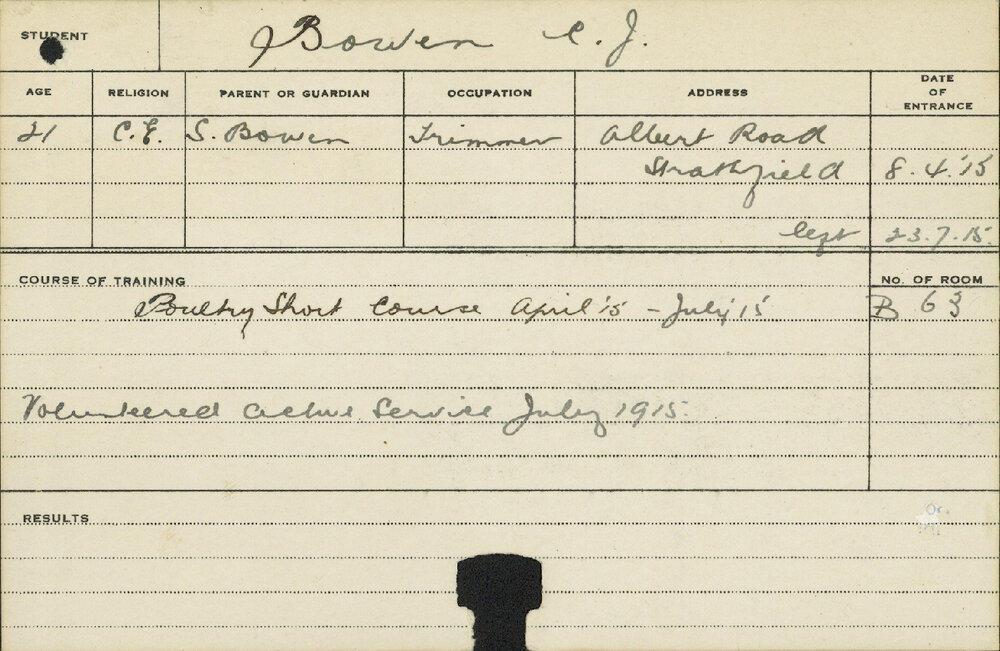 STUDENT Bowen C. J.
AGE RELIGION PARENT OR GUARDIAN OCCUPATION ADDRESS DATE OF ENTRANCE
21 C.E. S. Bowen Trimmer Albert Road
Strathfield 8.4.'15
left 23.7.15.
COURSE OF TRAINING No. OF ROOM
Poultry Short Course April '15 - July '15 B 63
Volunteered active Service July 1915.
RESULTS